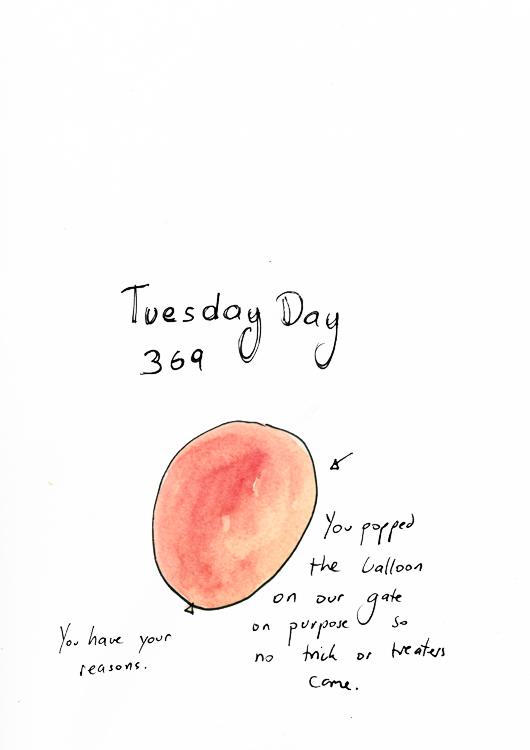 Tuesday Day
369
You popped
the balloon
on our gate
on purpose so
no trick or treaters
come.
You have your
reasons.